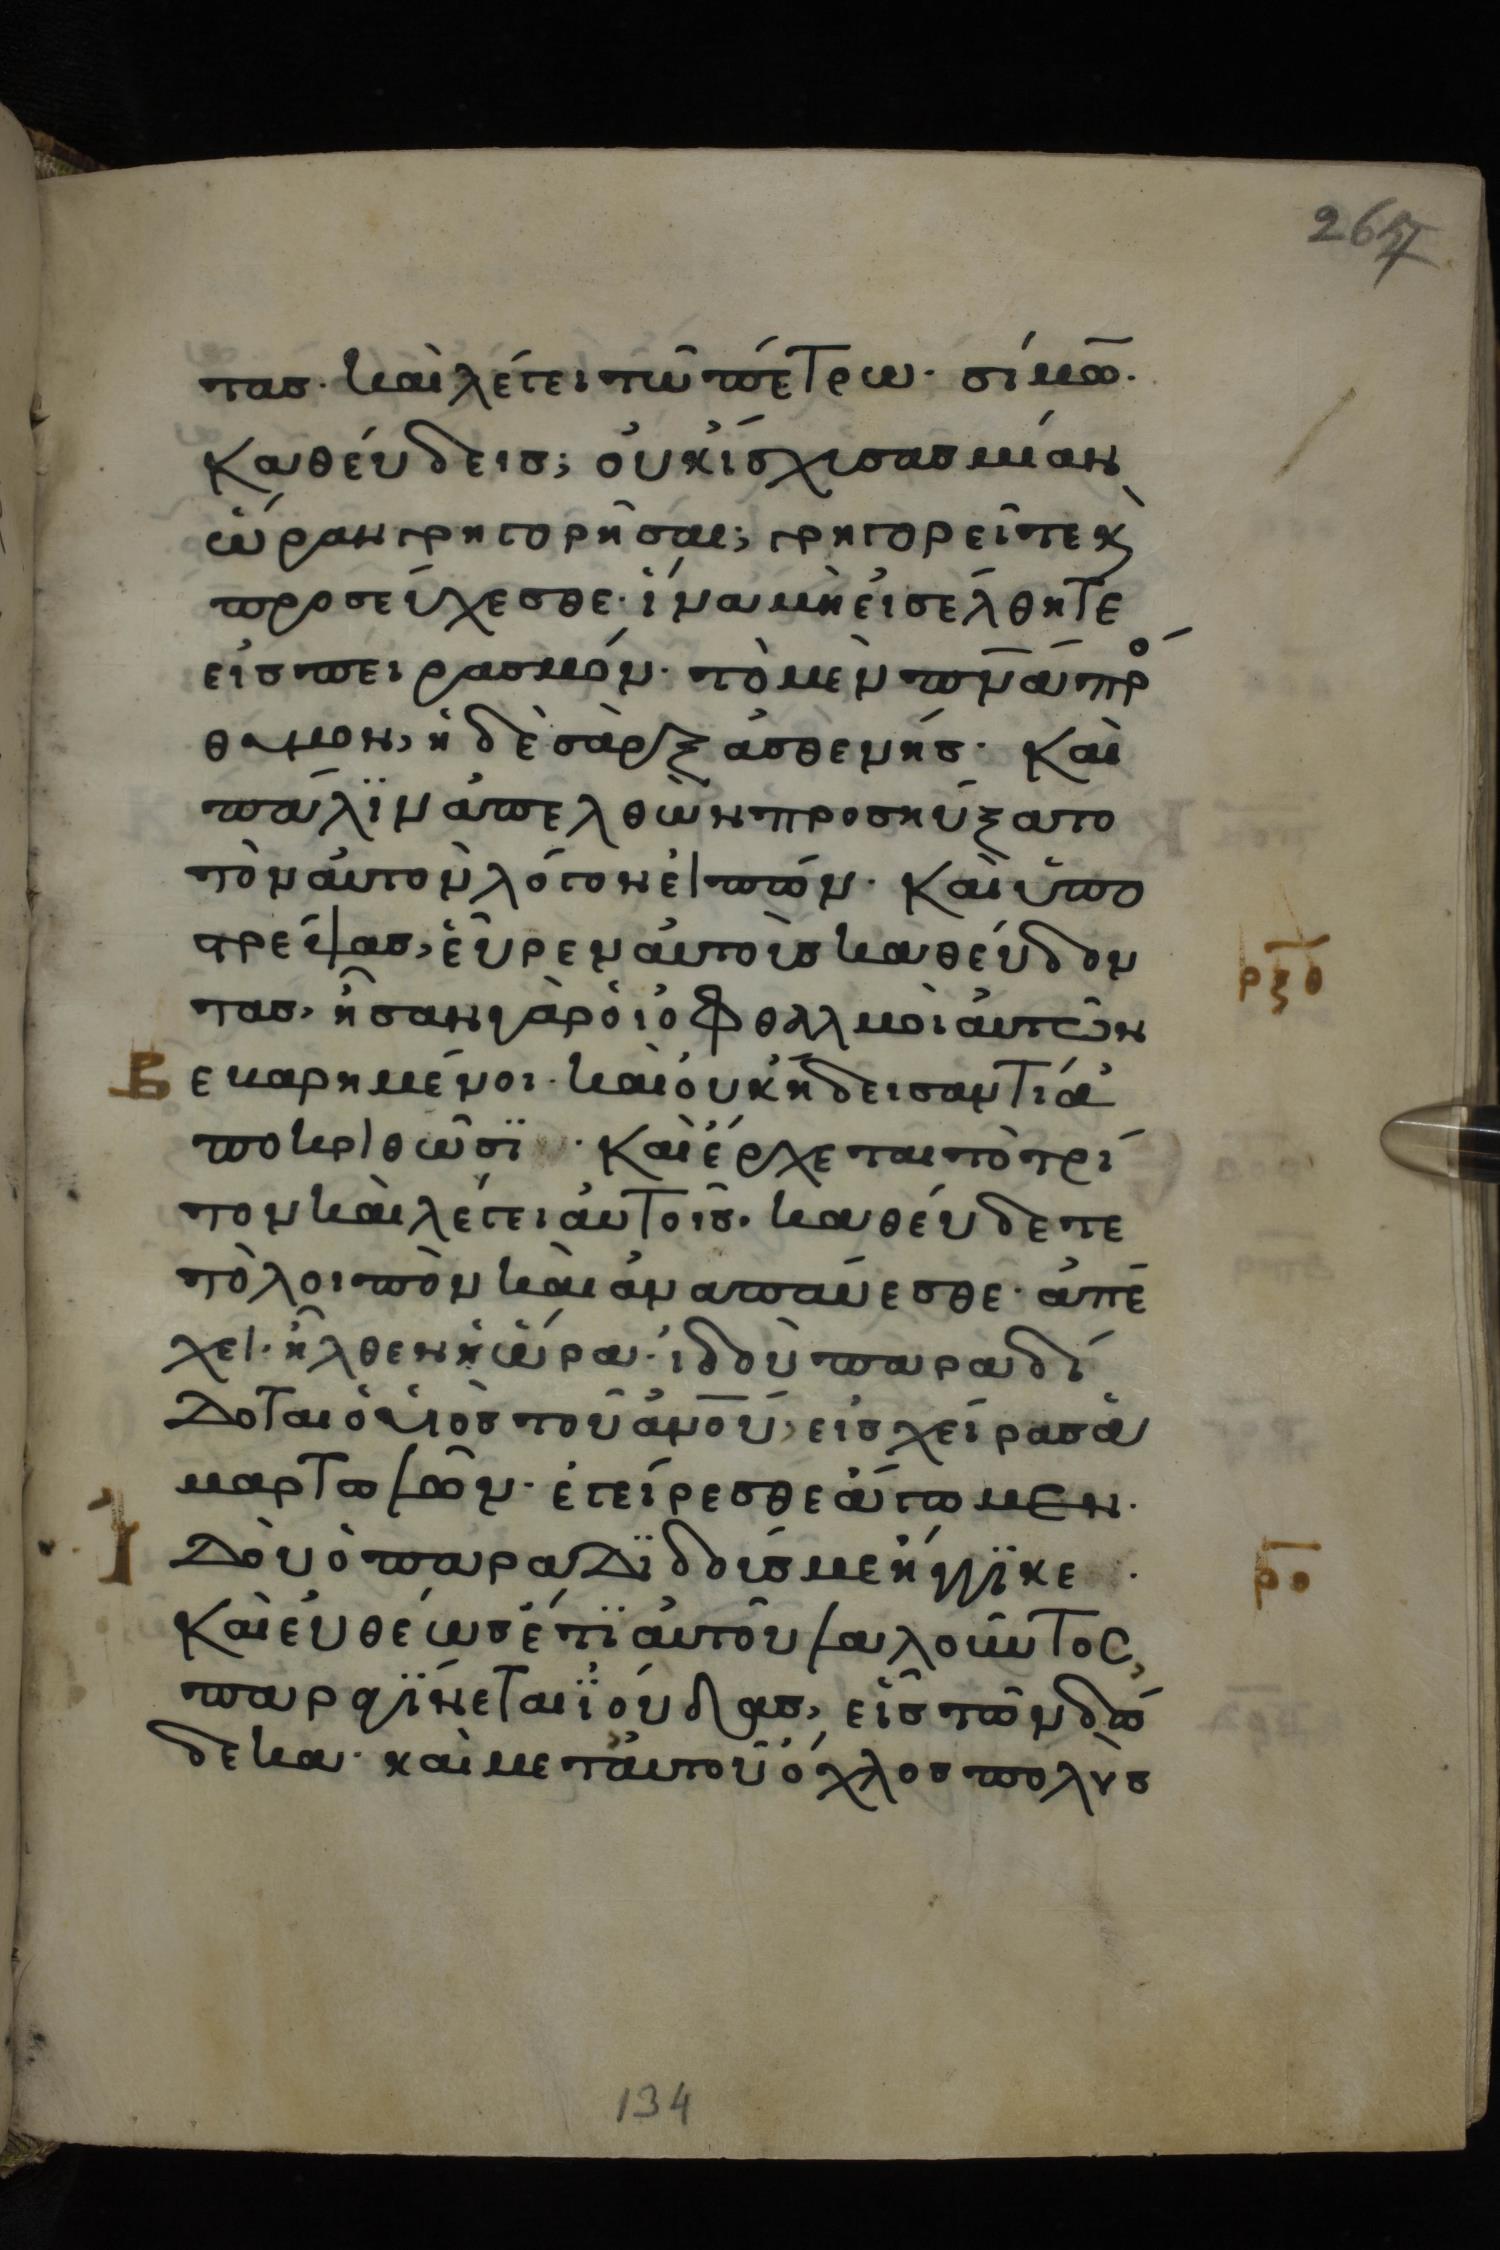 267
τας· καὶ λέγει τῶ πέτρω· σίμων·
καθεύδεις; οὐκ ἴσχυσας μίαν
ὥραν γρηγορῆσαι; γρηγορεῖτε κ
προσεύχεσθε· ἵνα μὴ εἰσέλθητε
εἰς πειρασμόν· τὸ μὲν πνᾶ πρό
θυμον, ἡ δὲ σὰρξ ἀσθενής· καὶ
πάλϊν ἀπελθὼν προσηύξατο
τὸν αὐτὸν λόγον εἰπών· καὶ ὑπο
στρέψας, εὗρεν αὐτοὺς καθεύδον
τας, ἦσαν γὰρ οἱ ὀφθαλμοὶ αὐτῶν
βεκαρημένοι· καὶ οὐκ ἤδεισαν τί ἀ
ποκριθῶσϊ · καὶ ἔρχεται τὸ τρί
τον καὶ λέγει αὐτοῖς· καθεύδετε
τὸ λοιπὸν καὶ ἀναπαύεσθε· ἀπέ
χει· ἦλθεν ἡ ὥρα· ἰδοὺ παραδί
δοται ὁ υἱὸς τοῦ ἀνου, εἰς χεῖρας ἁ
μαρτωλῶν· ἐγείρεσθε ἄγωμεν·
ἰδοὺ ὁ παραδϊδούς με ἤγγϊκε ·
καὶ εὐθέως ἔτϊ αὐτοῦ λαλοῦντος,
παραγίνεται ϊούδας, εἷς τῶν δώ
δεκα· καὶ μετ αὐτοῦ ὄχλος πολὺς
ρξθ
ρο
134